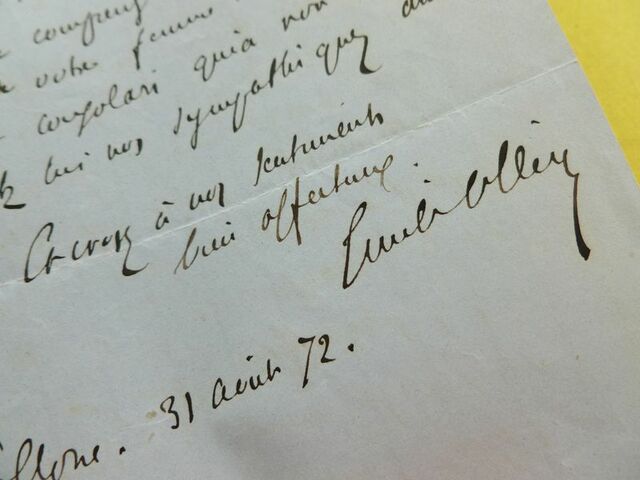 votre femme
consolari quia non
lui nos sympathiques
Et croyez à nos sentiments
bien affectueux.
Emile Ollivier
31 août 72.